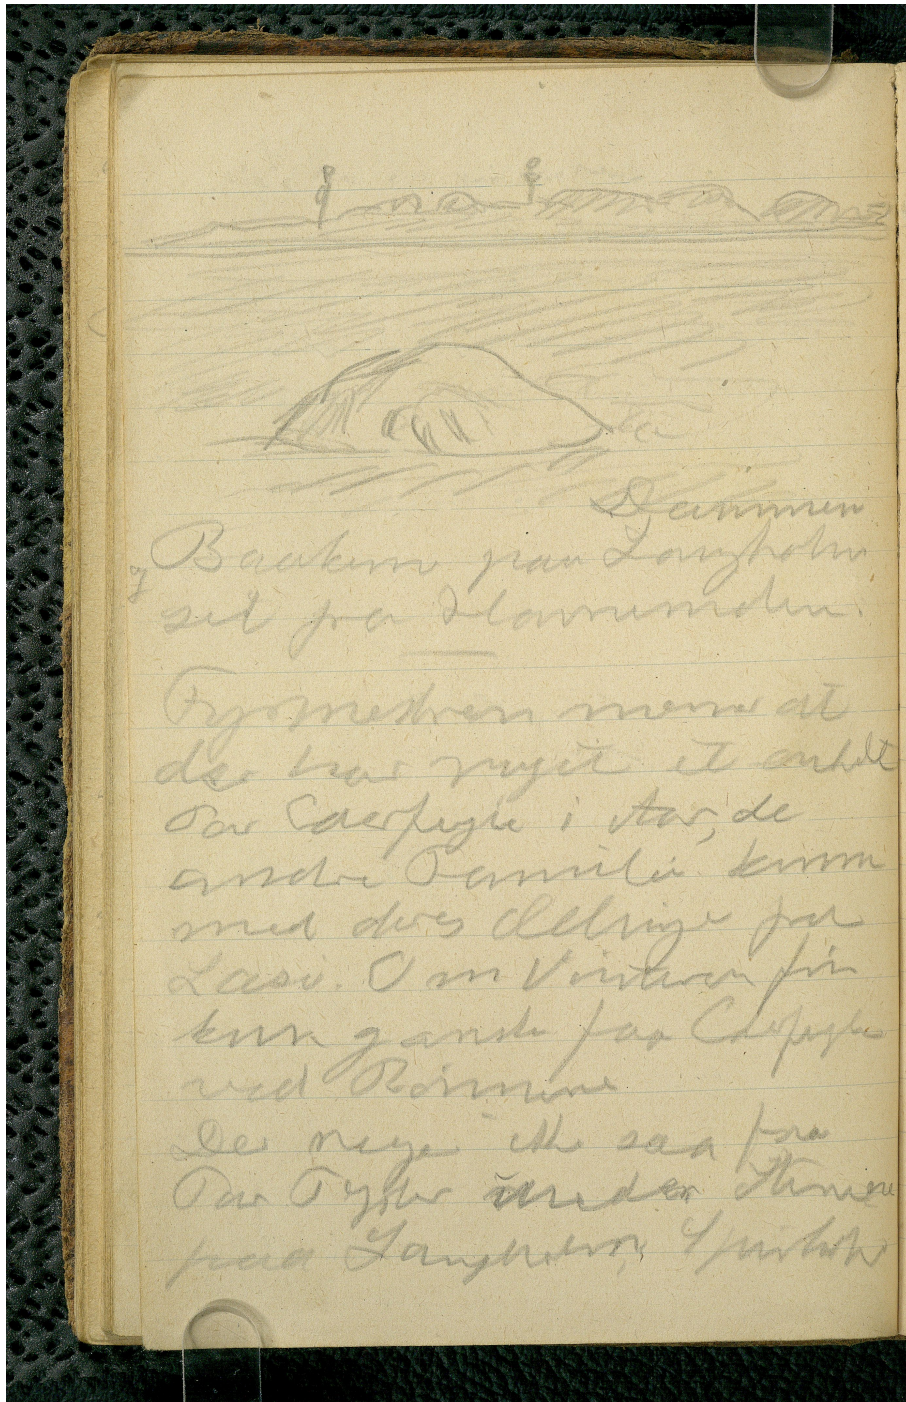 Dammen
og Baaken paa Langholm
set fra Havnemolen.
Fyrmestren mener at
der har ynget et enkelt
Par Ederfugle i Aar, de
andre Familier komm
med deres Ællinger fra
Læsø. Om Vinteren
kun ganske faa Ederfugle
ved Rönnerne
Der ynger ikke saa faa
Par Tejster under Stenene
paa Langholm,